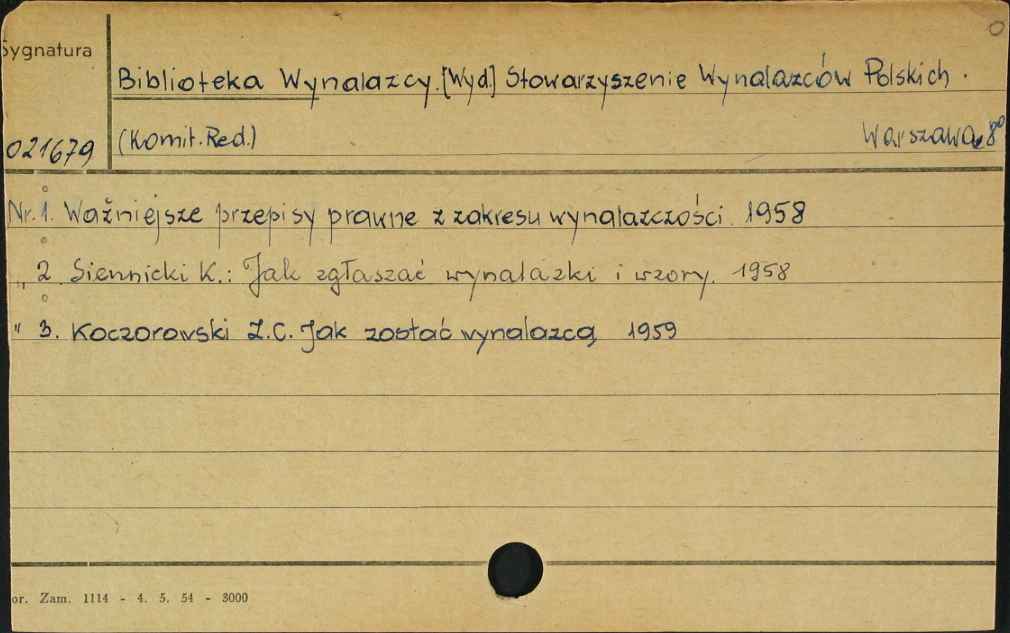 Sygnatura
Biblioteka Wynalazcy. [Wyd.] Stowarzyszenie Wynalazców Polskich.
021679 (Komit. Red.) Warszawa, 8°
Nr. 1. Ważniejsze przepisy prawne z zakresu wynalazczości. 1958
„ 2. Siennicki K.: Jak zgłaszać wynalazki i wzory. 1958
" 3. Koczorowski Z.C. Jak zostać wynalazcą 1959
or. Zam. 1114 - 4. 5. 54 - 3000